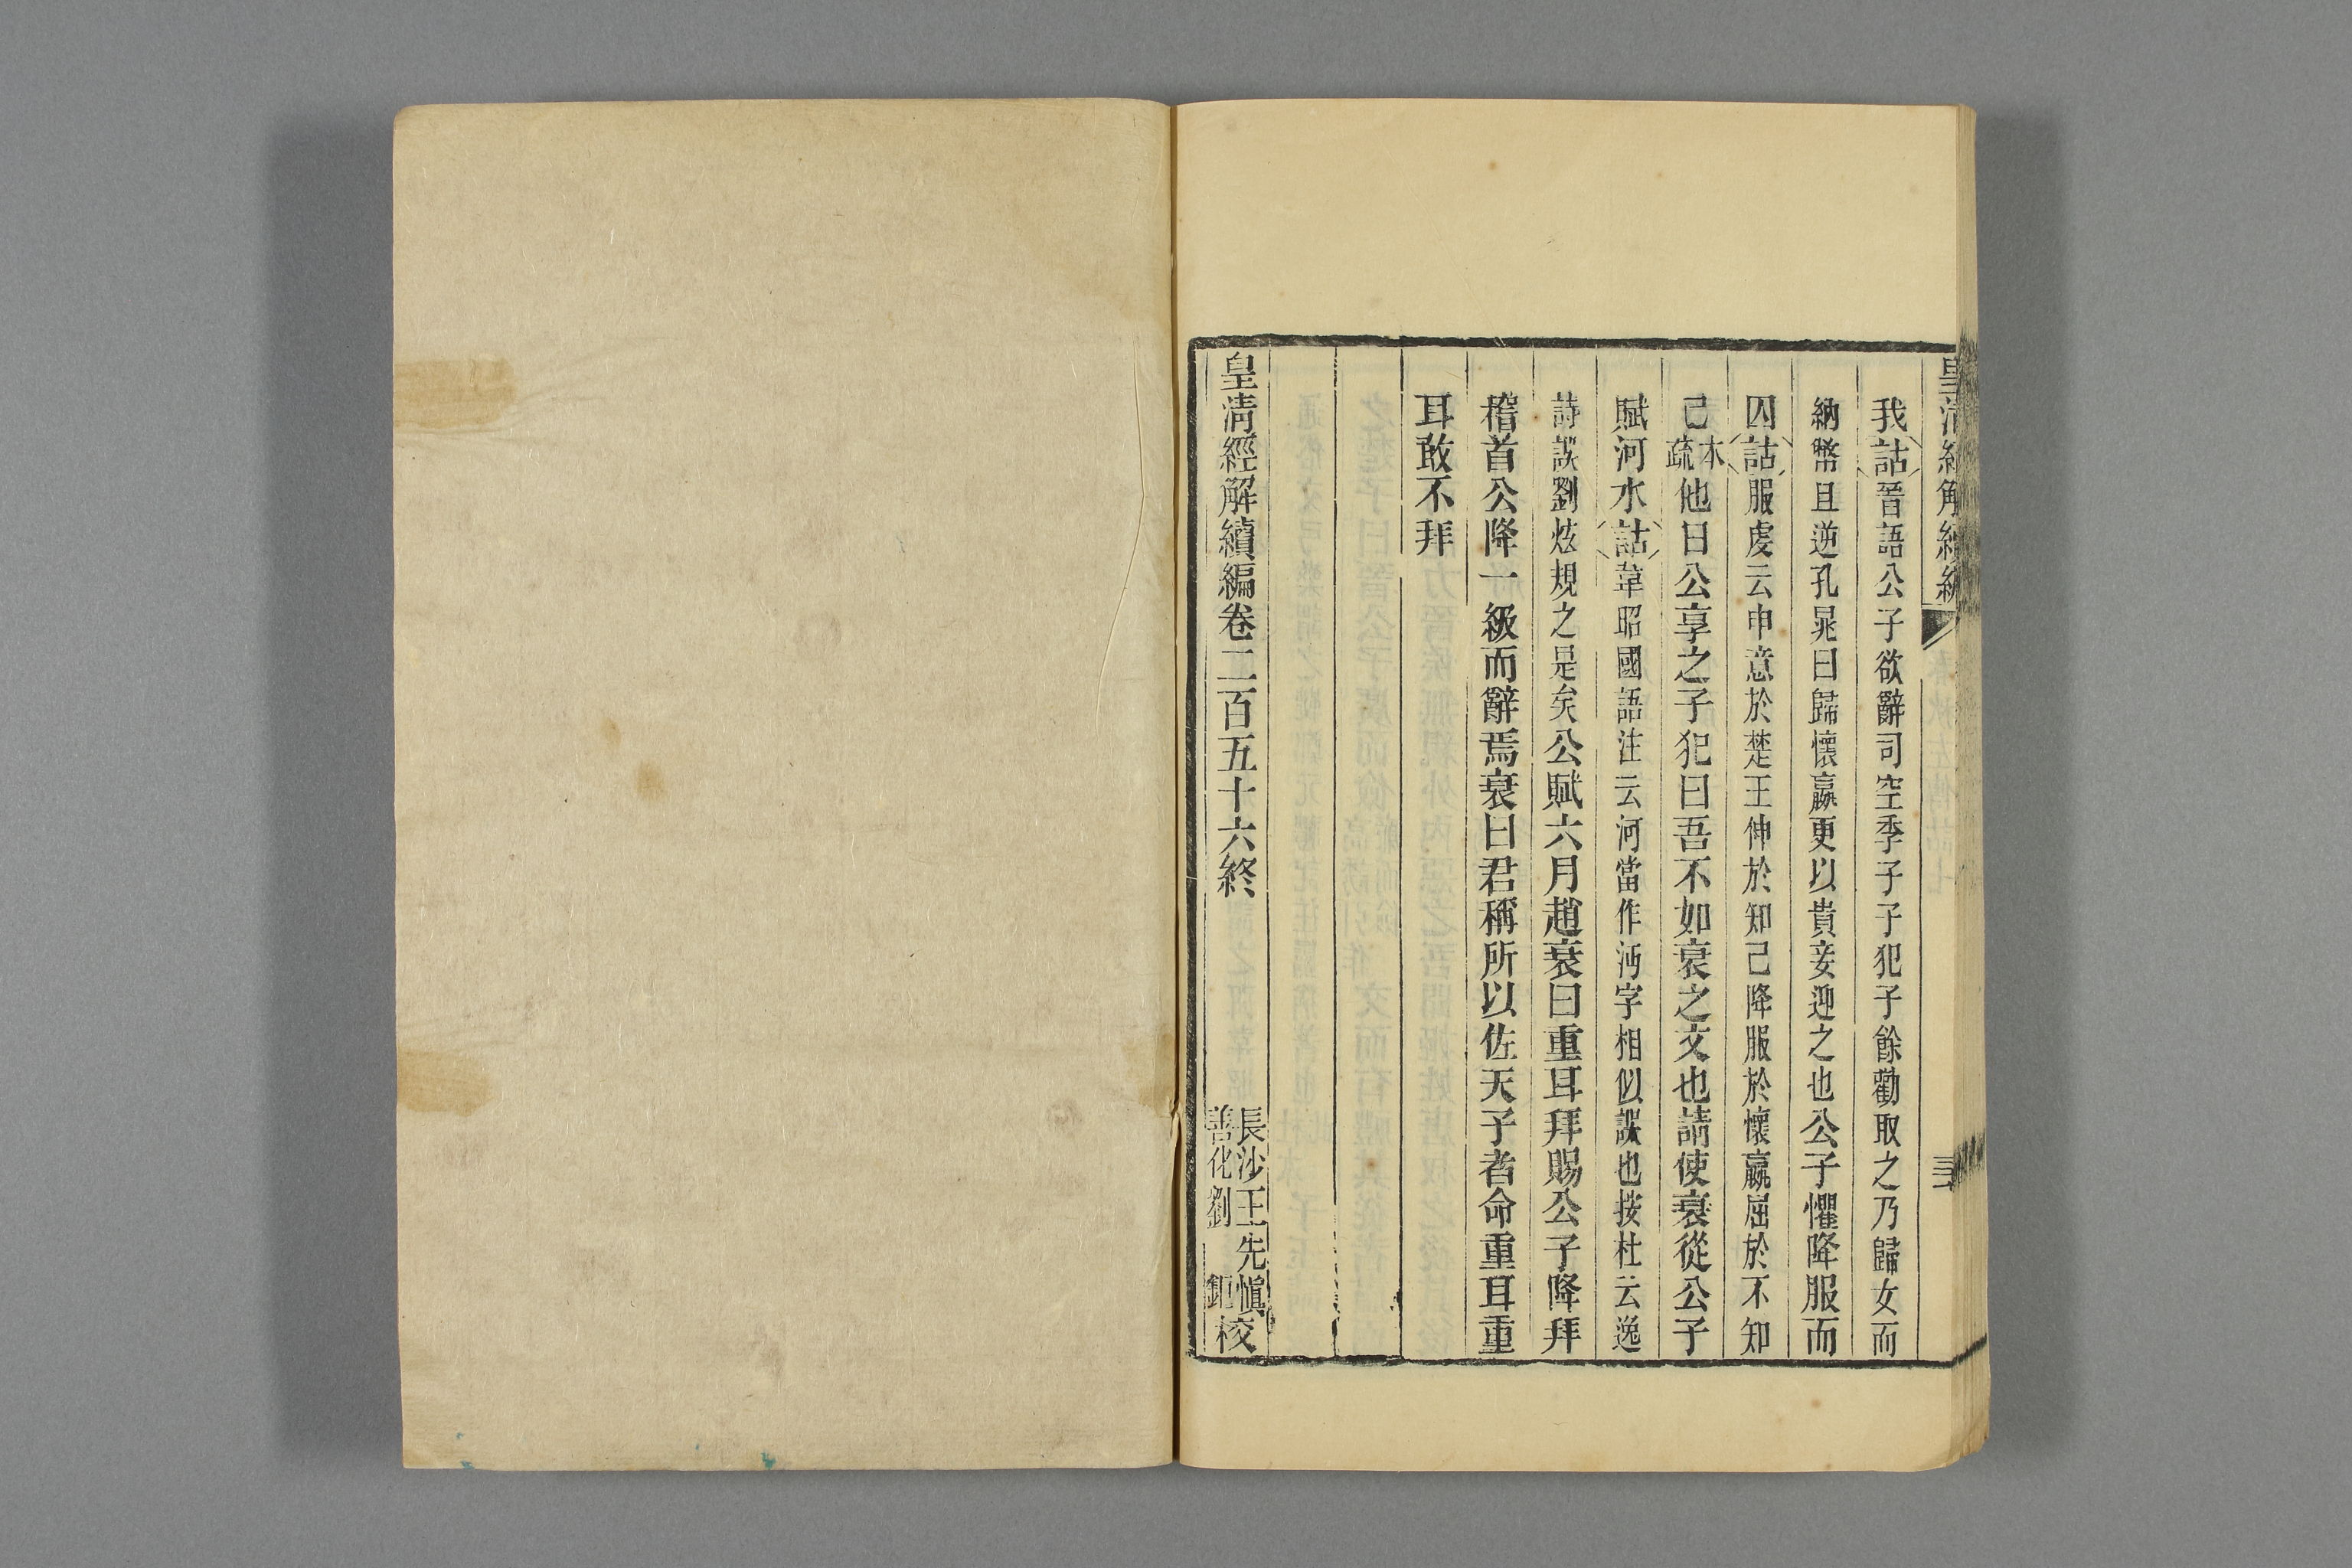 皇清經解續編
三十
我詁晉語公子欲辭司空季子子犯子餘勸取之乃歸女而
納幣且逆孔晁曰歸懷嬴更以貴妾迎之也公子懼降服而
囚詁服虔云申意於楚王伸於知己降服於懷嬴屈於不知
己本疏他日公享之子犯曰吾不如衰之文也請使衰從公子
賦河水詁韋昭國語注云河當作沔字相似誤也按杜云逸
詩誤劉炫規之是矣公賦六月趙衰曰重耳拜賜公子降拜
稽首公降一級而辭焉衰曰君稱所以佐天子者命重耳重
耳敢不拜
皇清經解續編卷二百五十六終
長沙王先愼
善化劉鉅校